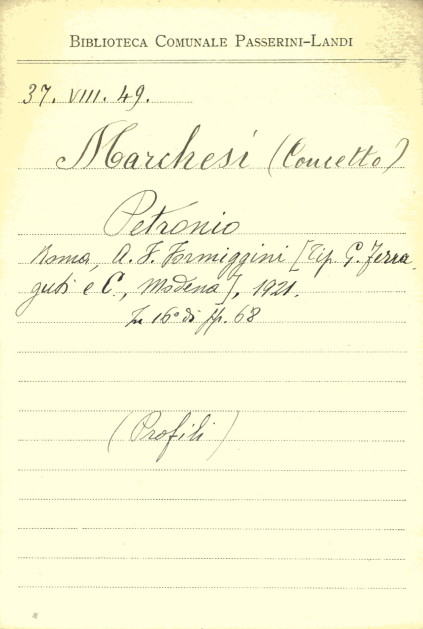 BIBLIOTECA COMUNALE PASSERINI-LANDI
37. VIII. 49.
Marchesi (Concetto)
Petronio
Roma, A. F. Formiggini [Tip. G. Ferra
guti e C., Modena], 1921.
In 16° di pp. 68
(Profili)